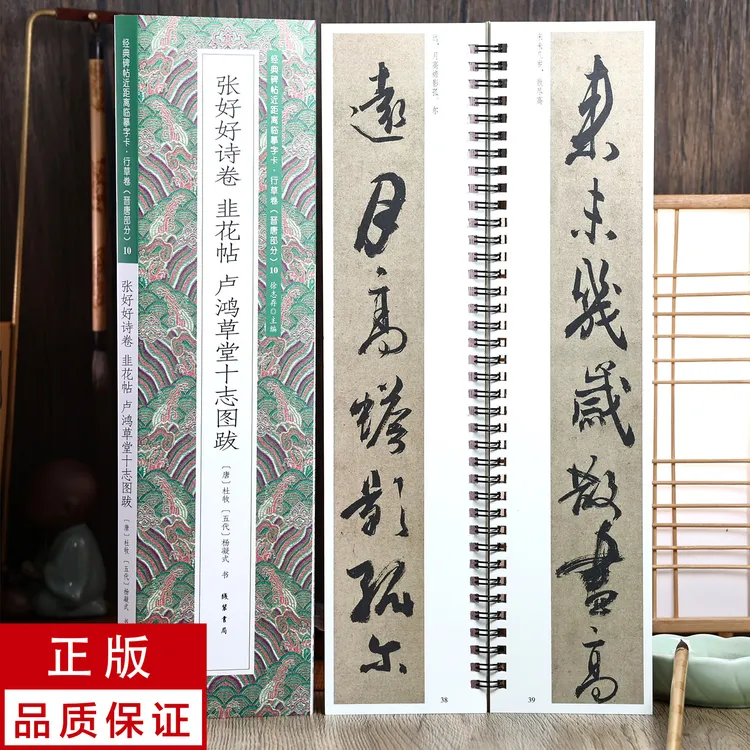 经典碑帖近距离临摹字卡·行草卷（晋唐部分） 10
张好好诗卷 韭花帖 卢鸿草堂十志图跋
〔唐〕杜牧 〔五代〕杨凝式 书
经典碑帖近距离临摹字卡·行草卷（晋唐部分） 10
徐志存○主编
张好好诗卷 韭花帖 卢鸿草堂十志图跋
〔唐〕杜牧 〔五代〕杨凝式 书
线装书局
来未几岁，散尽高
來未幾歲散盡高
39
远，月高蟾影孤。尔
遠月高蟾影孤尔
38
正版
品质保证